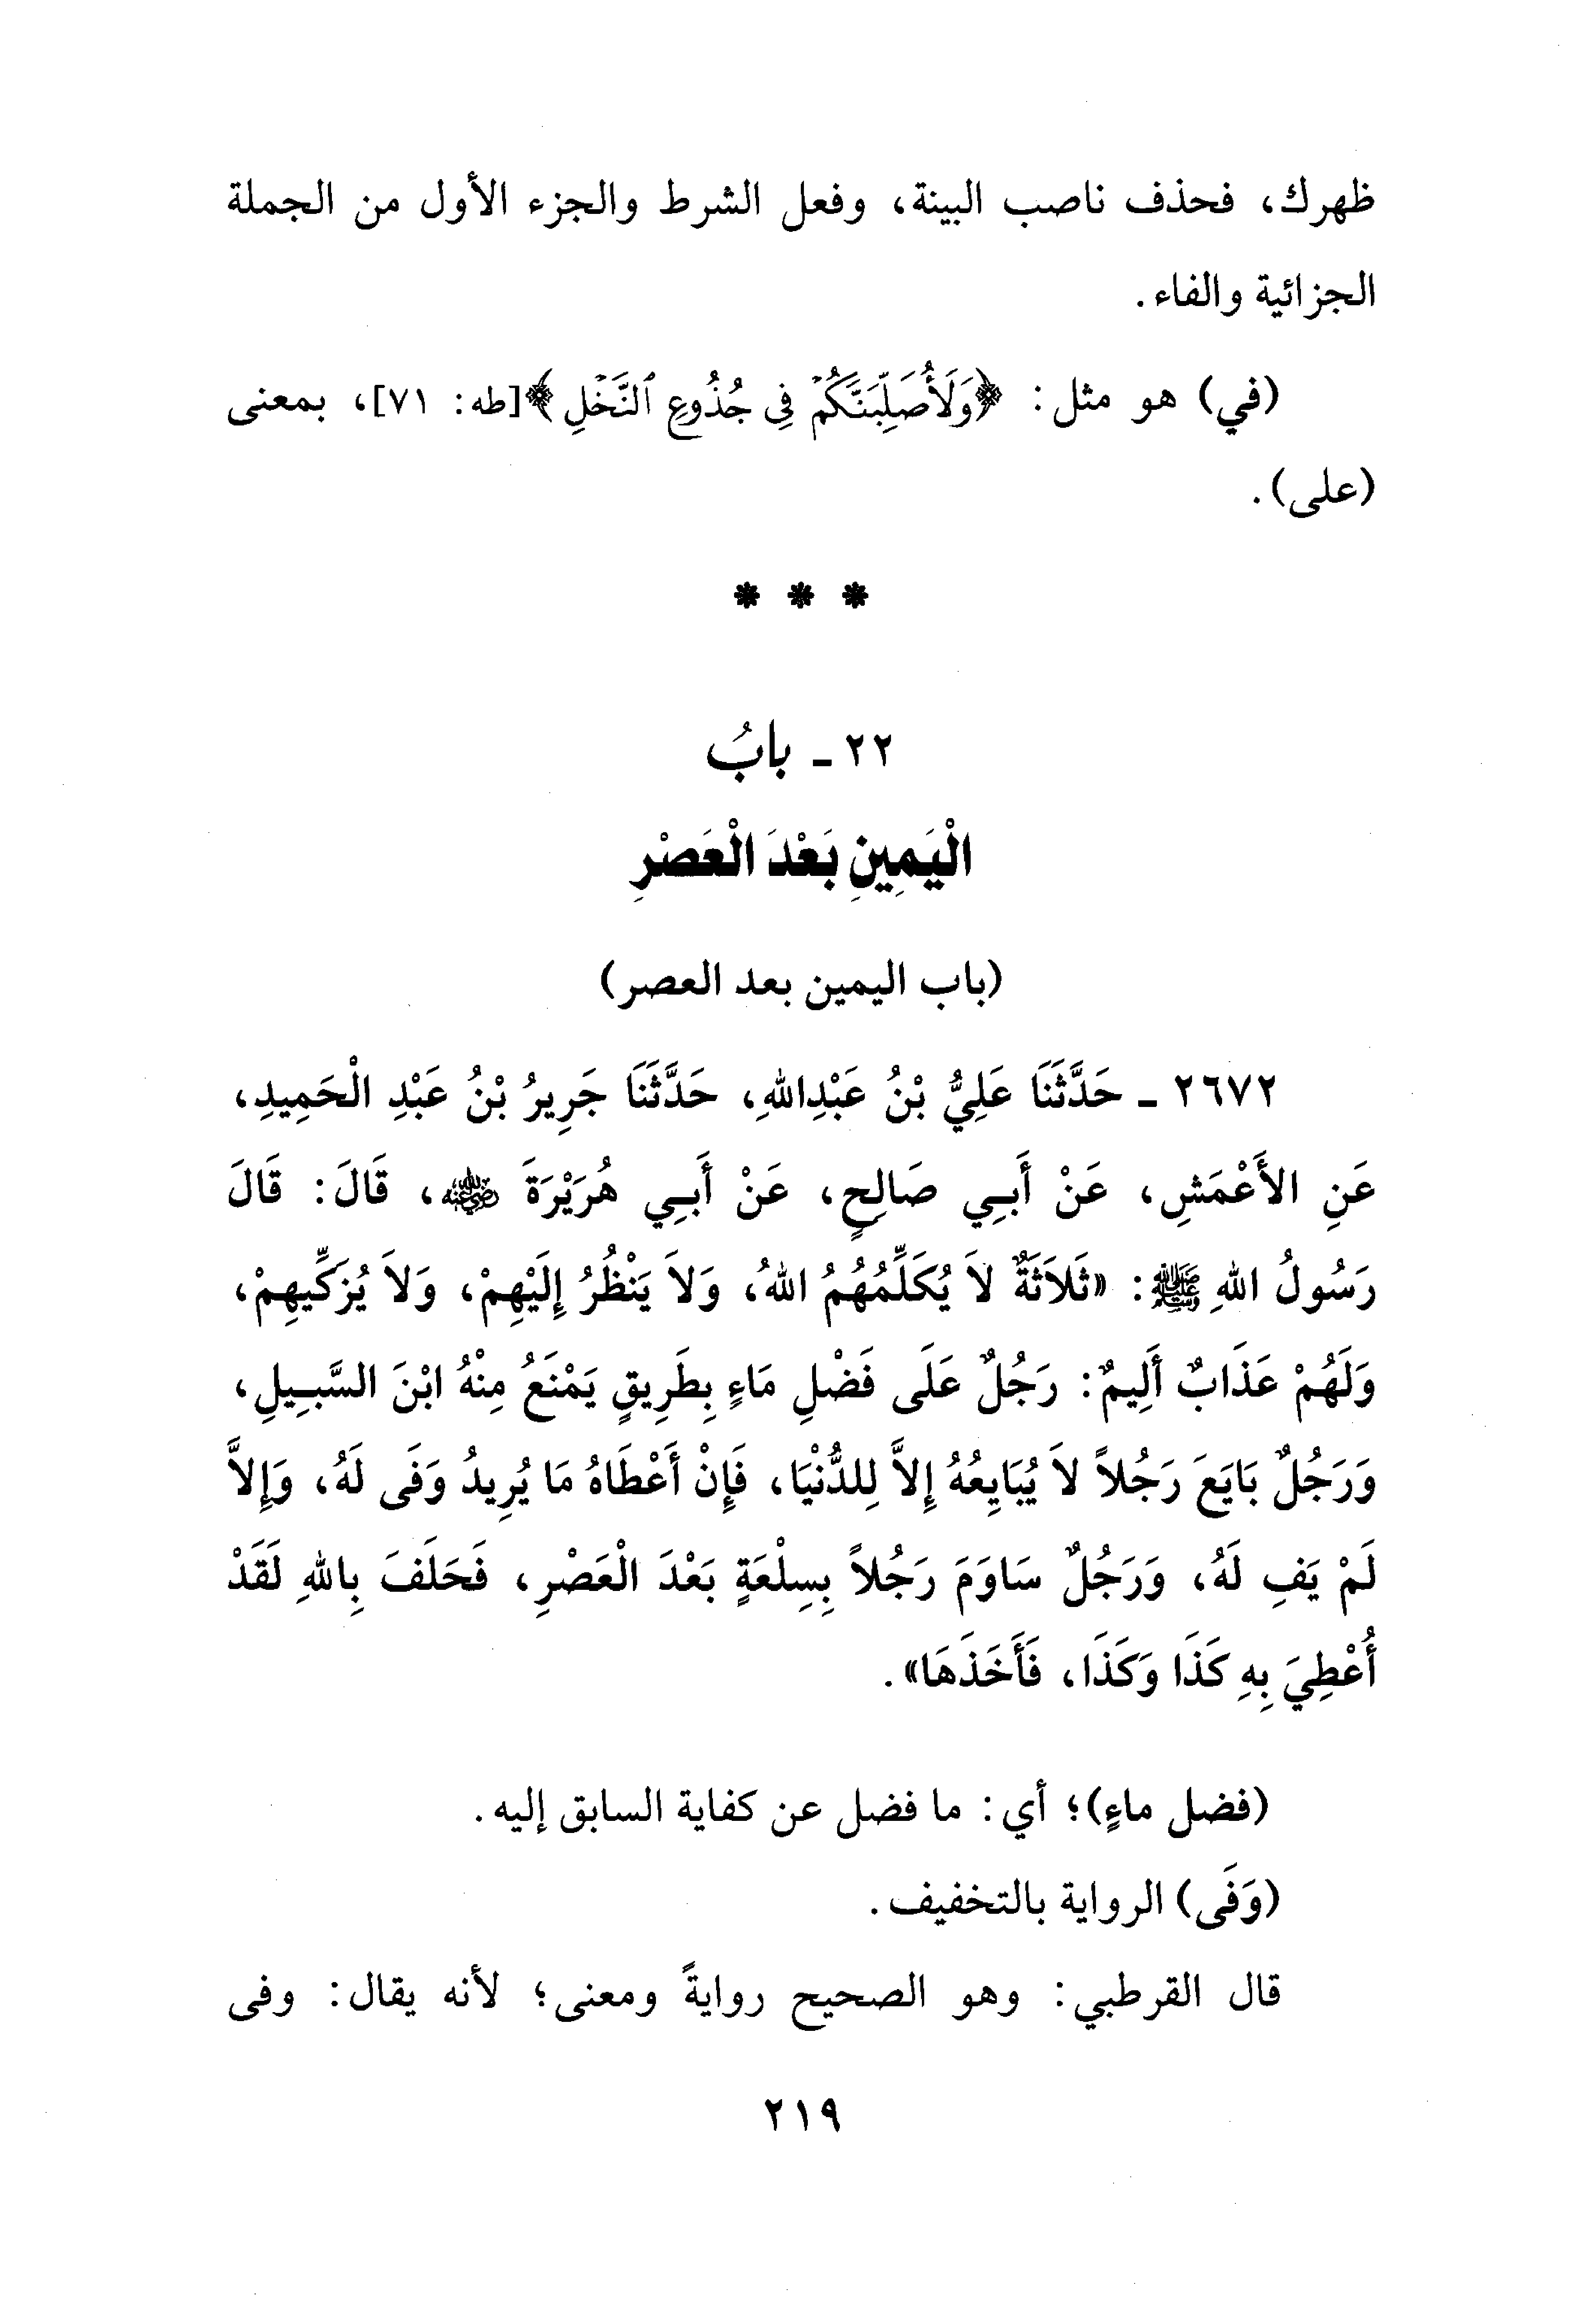 ظهرك، فحذف ناصب البينة، وفعل الشرط والجزء الأول من الجملة
الجزائية والفاء.
(في) هو مثل: ﴿وَلَأُصَلِّبَنَّكُمْ فِي جُذُوعِ ٱلنَّخْلِ﴾[طه: ٧١]، بمعنى
(على).
* * *
٢٢ - بابُ
الْيَمِينِ بَعْدَ الْعَصْرِ
(باب اليمين بعد العصر)
٢٦٧٢ - حَدَّثَنَا عَلِيُّ بْنُ عَبْدِاللهِ، حَدَّثَنَا جَرِيرُ بْنُ عَبْدِ الْحَمِيدِ،
عَنِ الأَعْمَشِ، عَنْ أَبِي صَالِحٍ، عَنْ أَبِي هُرَيْرَةَ رضي الله عنه، قَالَ: قَالَ
رَسُولُ اللهِ ﷺ: «ثَلاَثَةٌ لاَ يُكَلِّمُهُمُ اللهُ، وَلاَ يَنْظُرُ إِلَيْهِمْ، وَلاَ يُزَكِّيهِمْ،
وَلَهُمْ عَذَابٌ أَلِيمٌ: رَجُلٌ عَلَى فَضْلِ مَاءٍ بِطَرِيقٍ يَمْنَعُ مِنْهُ ابْنَ السَّبِيلِ،
وَرَجُلٌ بَايَعَ رَجُلاً لاَ يُبَايِعُهُ إِلاَّ لِلدُّنْيَا، فَإِنْ أَعْطَاهُ مَا يُرِيدُ وَفَى لَهُ، وَإِلاَّ
لَمْ يَفِ لَهُ، وَرَجُلٌ سَاوَمَ رَجُلاً بِسِلْعَةٍ بَعْدَ الْعَصْرِ، فَحَلَفَ بِاللهِ لَقَدْ
أُعْطِيَ بِهِ كَذَا وَكَذَا، فَأَخَذَهَا».
(فضل ماءٍ)؛ أي: ما فضل عن كفاية السابق إليه.
(وَفَى) الرواية بالتخفيف.
قال القرطبي: وهو الصحيح روايةً ومعنى؛ لأنه يقال: وفى
٢١٩